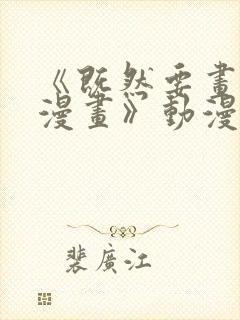 《既然要畫
漫畫》動漫
裴廣江